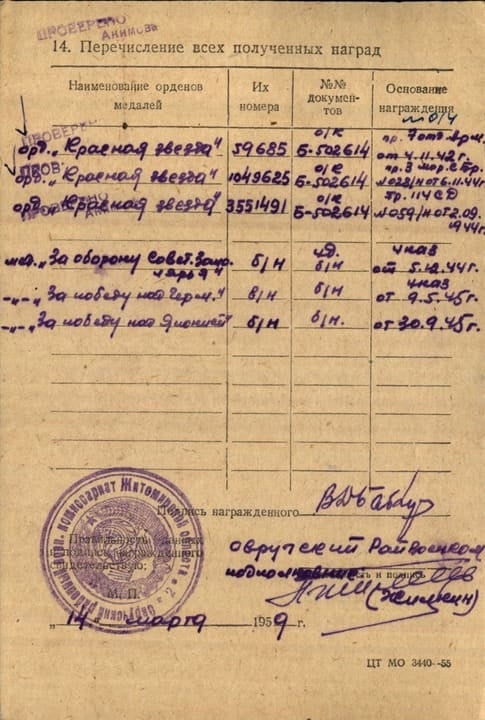 ПРОВЕРЕНО
АНИМОВА
14. Перечисление всех полученных наград
Наименование орденов медалей
Их номера
№№ документов
Основание награждения
ПРОВЕРЕНО
орд. „Красная звезда" 59685 о/к Б-502614
от 4.11.42 г.
орд. „Красная звезда" 1049625 о/к Б-502614 №028/н от 6.11.44 г.
орд. „Красная звезда" 3551491 Б-502614 пр. 114 СД №059/н от 2.09.1944 г.
мед. „За оборону Совет. Запо-
лярья" б/н уд. б/н указ от 5.12.44 г.
-„- „За победу над Герм." б/н б/н указ от 9.5.45 г.
-„- „За победу над Японией" б/н б/н. от 30.9.45 г.
Подпись награжденного
Правильность данных
и подписи награжденного
свидетельствую:
Овручский Райвоенком
подполковник
и подпись
М. П.
(Жилкин)
„14" марта 1959 г.
Овручский районный воен. комиссариат Житомирской области
ЦТ МО 3440-55